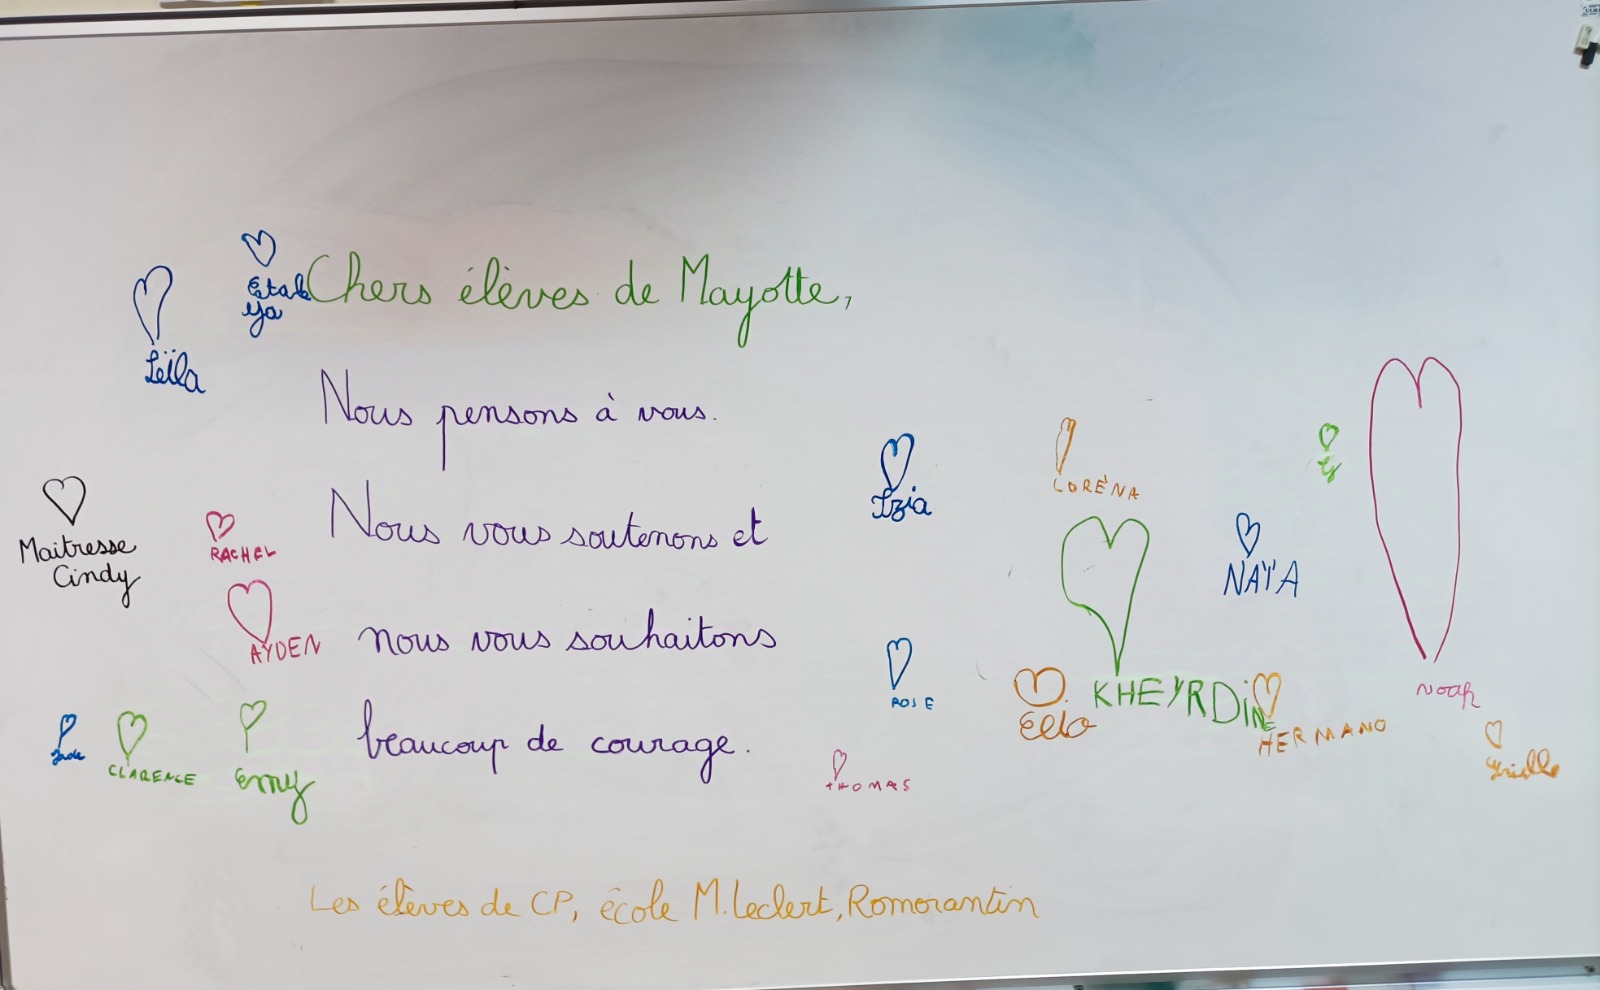 Chers élèves de Mayotte,
Nous pensons à vous.
Nous vous soutenons et
nous vous souhaitons
beaucoup de courage.
Les élèves de CP, école M. Leclert, Romorantin
Leïla
Maitresse
Cindy
RACHEL
AYDEN
Jude
CLARENCE
Emmy
Izia
LORÉNA
NAYA
ROSE
KHEYRDINE
HERMANO
Noah
THOMAS